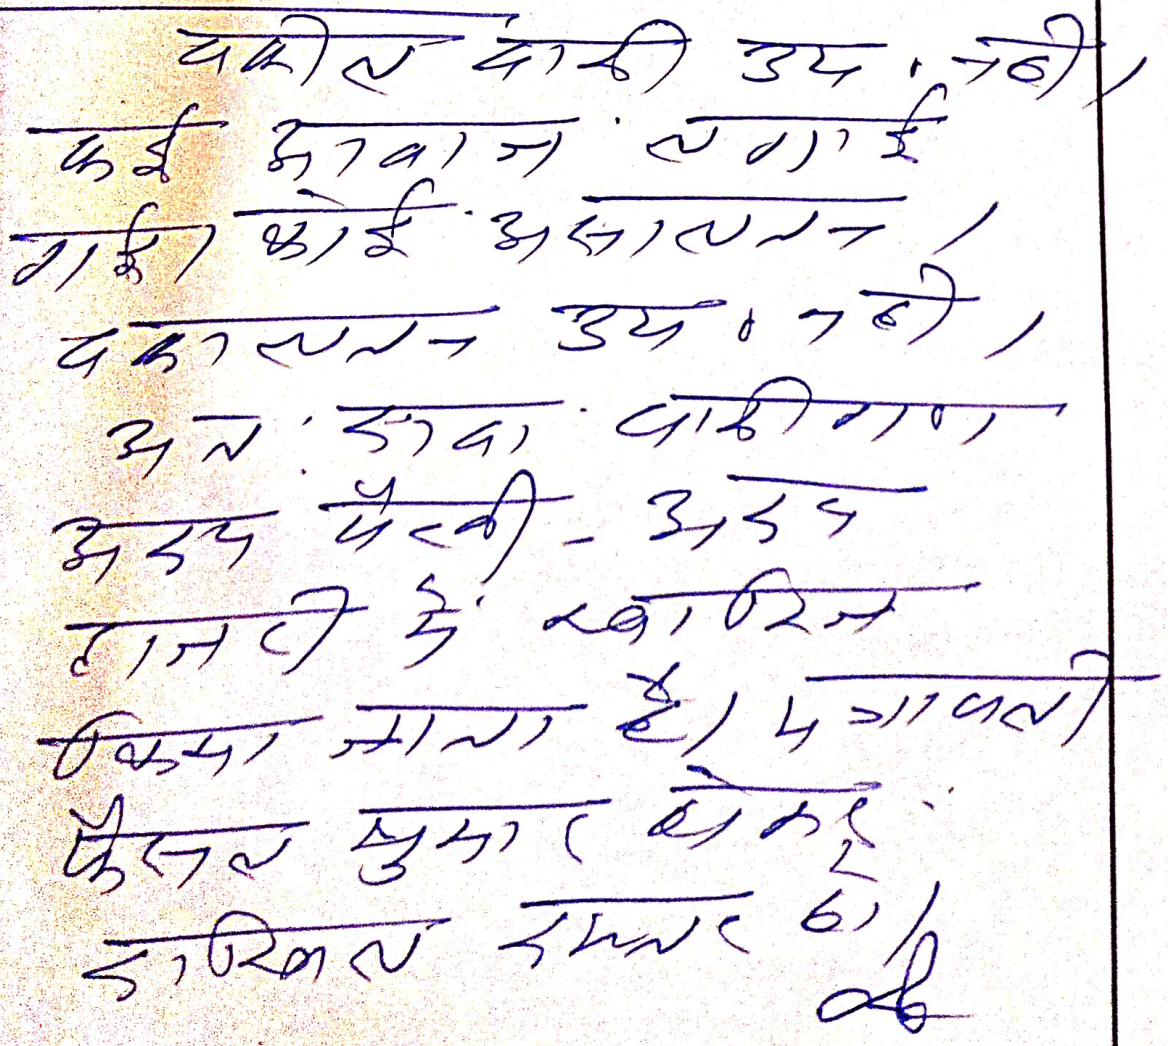 वकील वादी उप. नही।
कई आवाज लगाई
गई। कोई असालतन।
वकालतन उप. नही।
अतः दावा वादीगण
अदम पैरवी - अदम
हाजरी में खारिज
किया जाता है। पत्रावली
फैसल शुमार होकर
दाखिल दफ्तर हो।